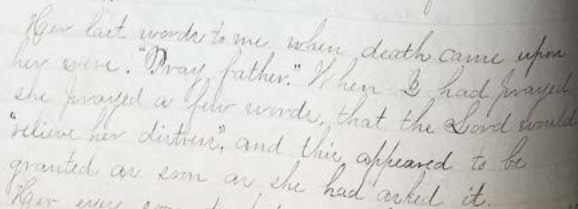 Her last words to me when death came upon
her were. "Pray, father." When I had prayed
she prayed a few words, that the Lord would
"relieve her distress", and this, appeared to be
granted as soon as she had asked it.
Her eyes